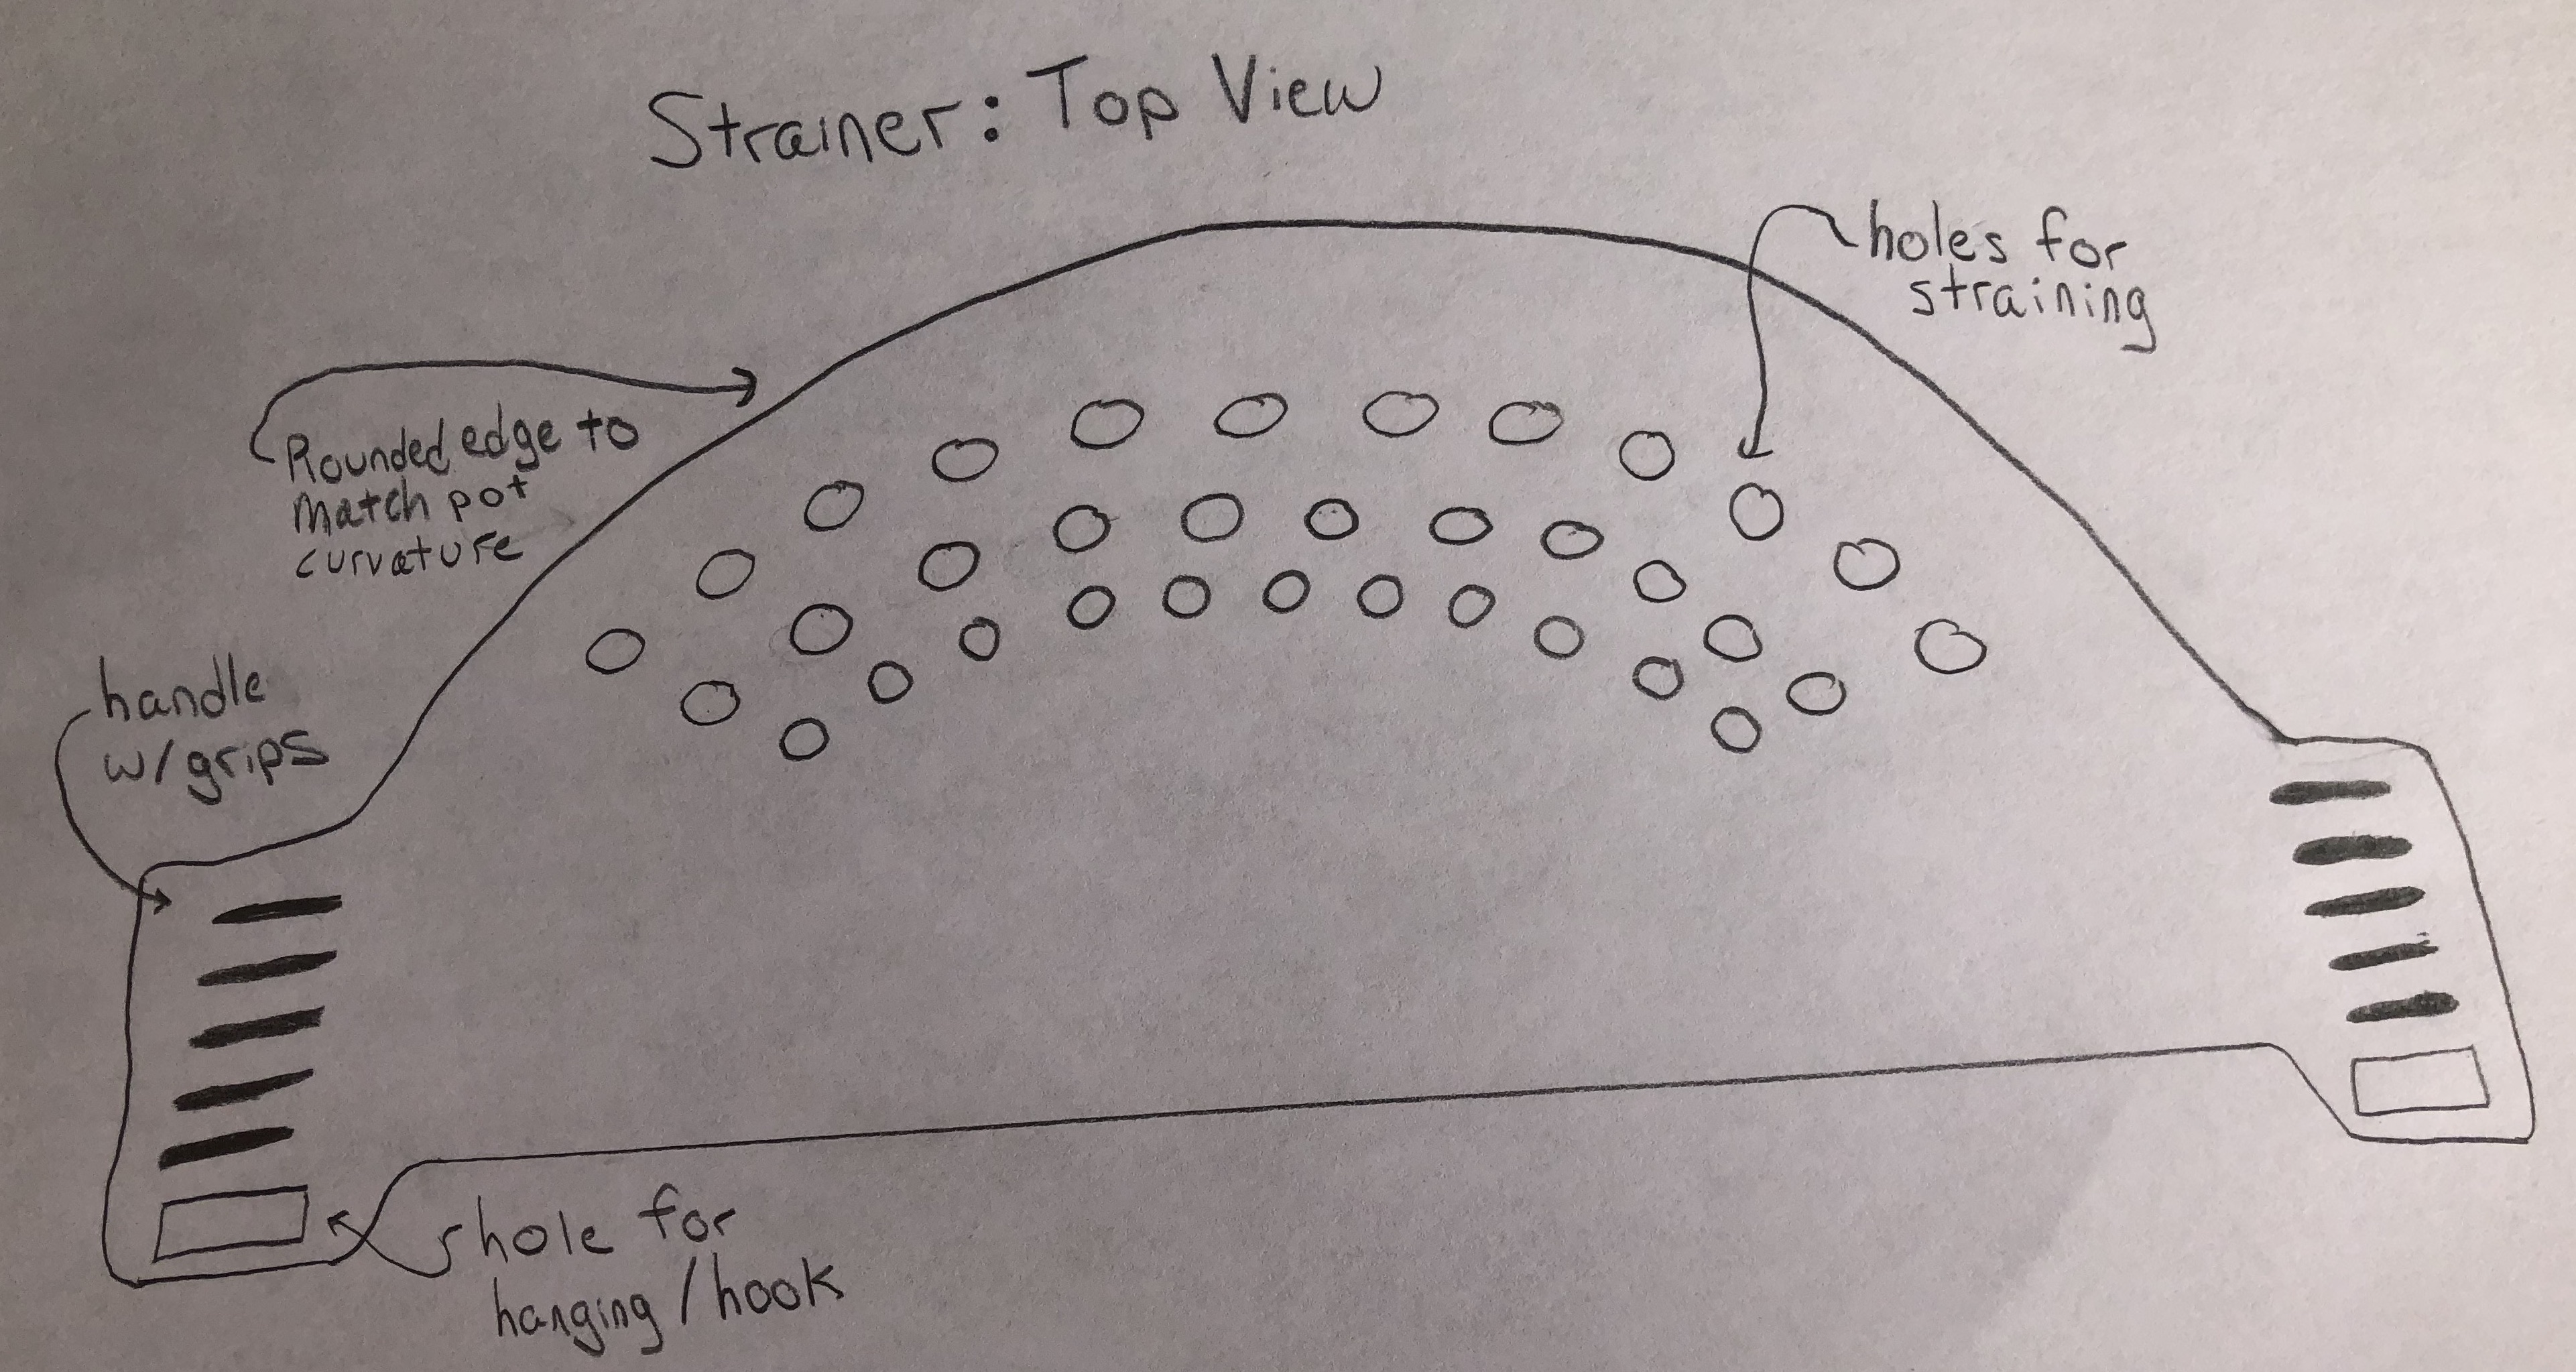 Strainer: Top View
holes for
straining
Rounded edge to
Match pot
curvature
handle
w/grips
hole for
hanging/hook